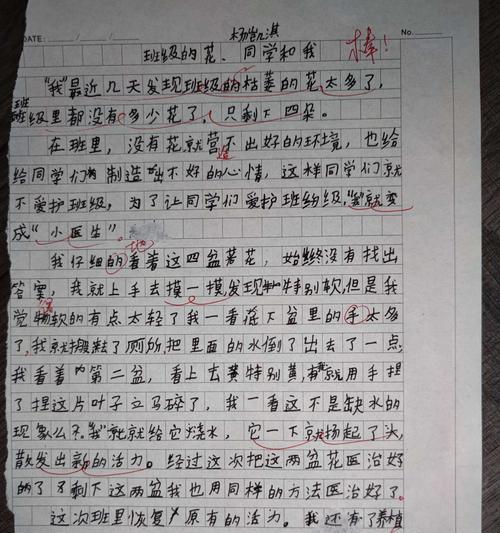 杨凯淇
DATE: / /
No.
班级的花、同学和我
棒!
"我"最近几天发现班级的枯萎的花太多了,
班级里都没有多少花了,只剩下四朵。
在班里,没有花就营不出好的环境,也给
给同学们制造出不好的心情,这样同学们就
不爱护班级,为了让同学们爱护班级,"我"就变
成"小医生"。
地
我仔细的看着这四盆花,始终没有找出
答案,我就上手去摸一摸,发现特别软,但是我
觉软的有点太轻了我一看花下盆里的手太多
了,我就搬去了厕所,把里面的水倒了出去了一点,
我看着第二盆,看上去黄特别黄,就用手捏
了捏这片叶子立马碎了,我一看这不是缺水的
现象么?"我"就给它浇水,它一下就扬起了头,
散发出新的活力。经过这次把这两盆花医治好
的了剩下这两盆我也用同样的方法医治好了。
这次班里恢复原有的活力。我还有了养植